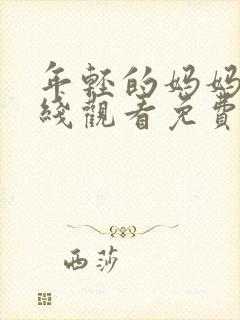 年輕的媽媽
綫觀看免費
西莎